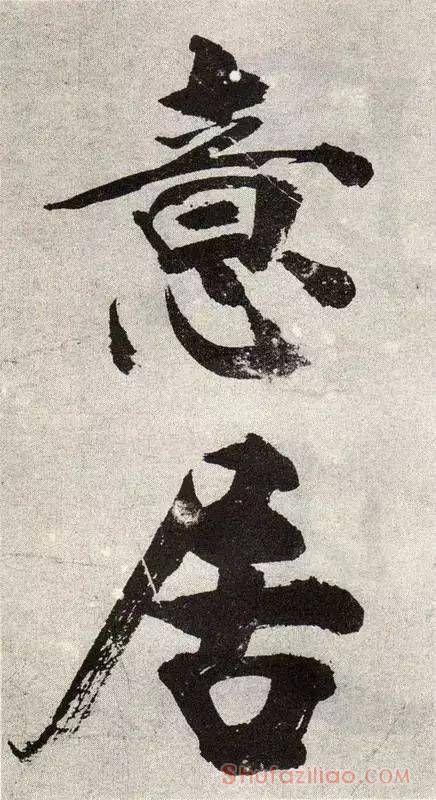 意
居
Shufaziliao.com